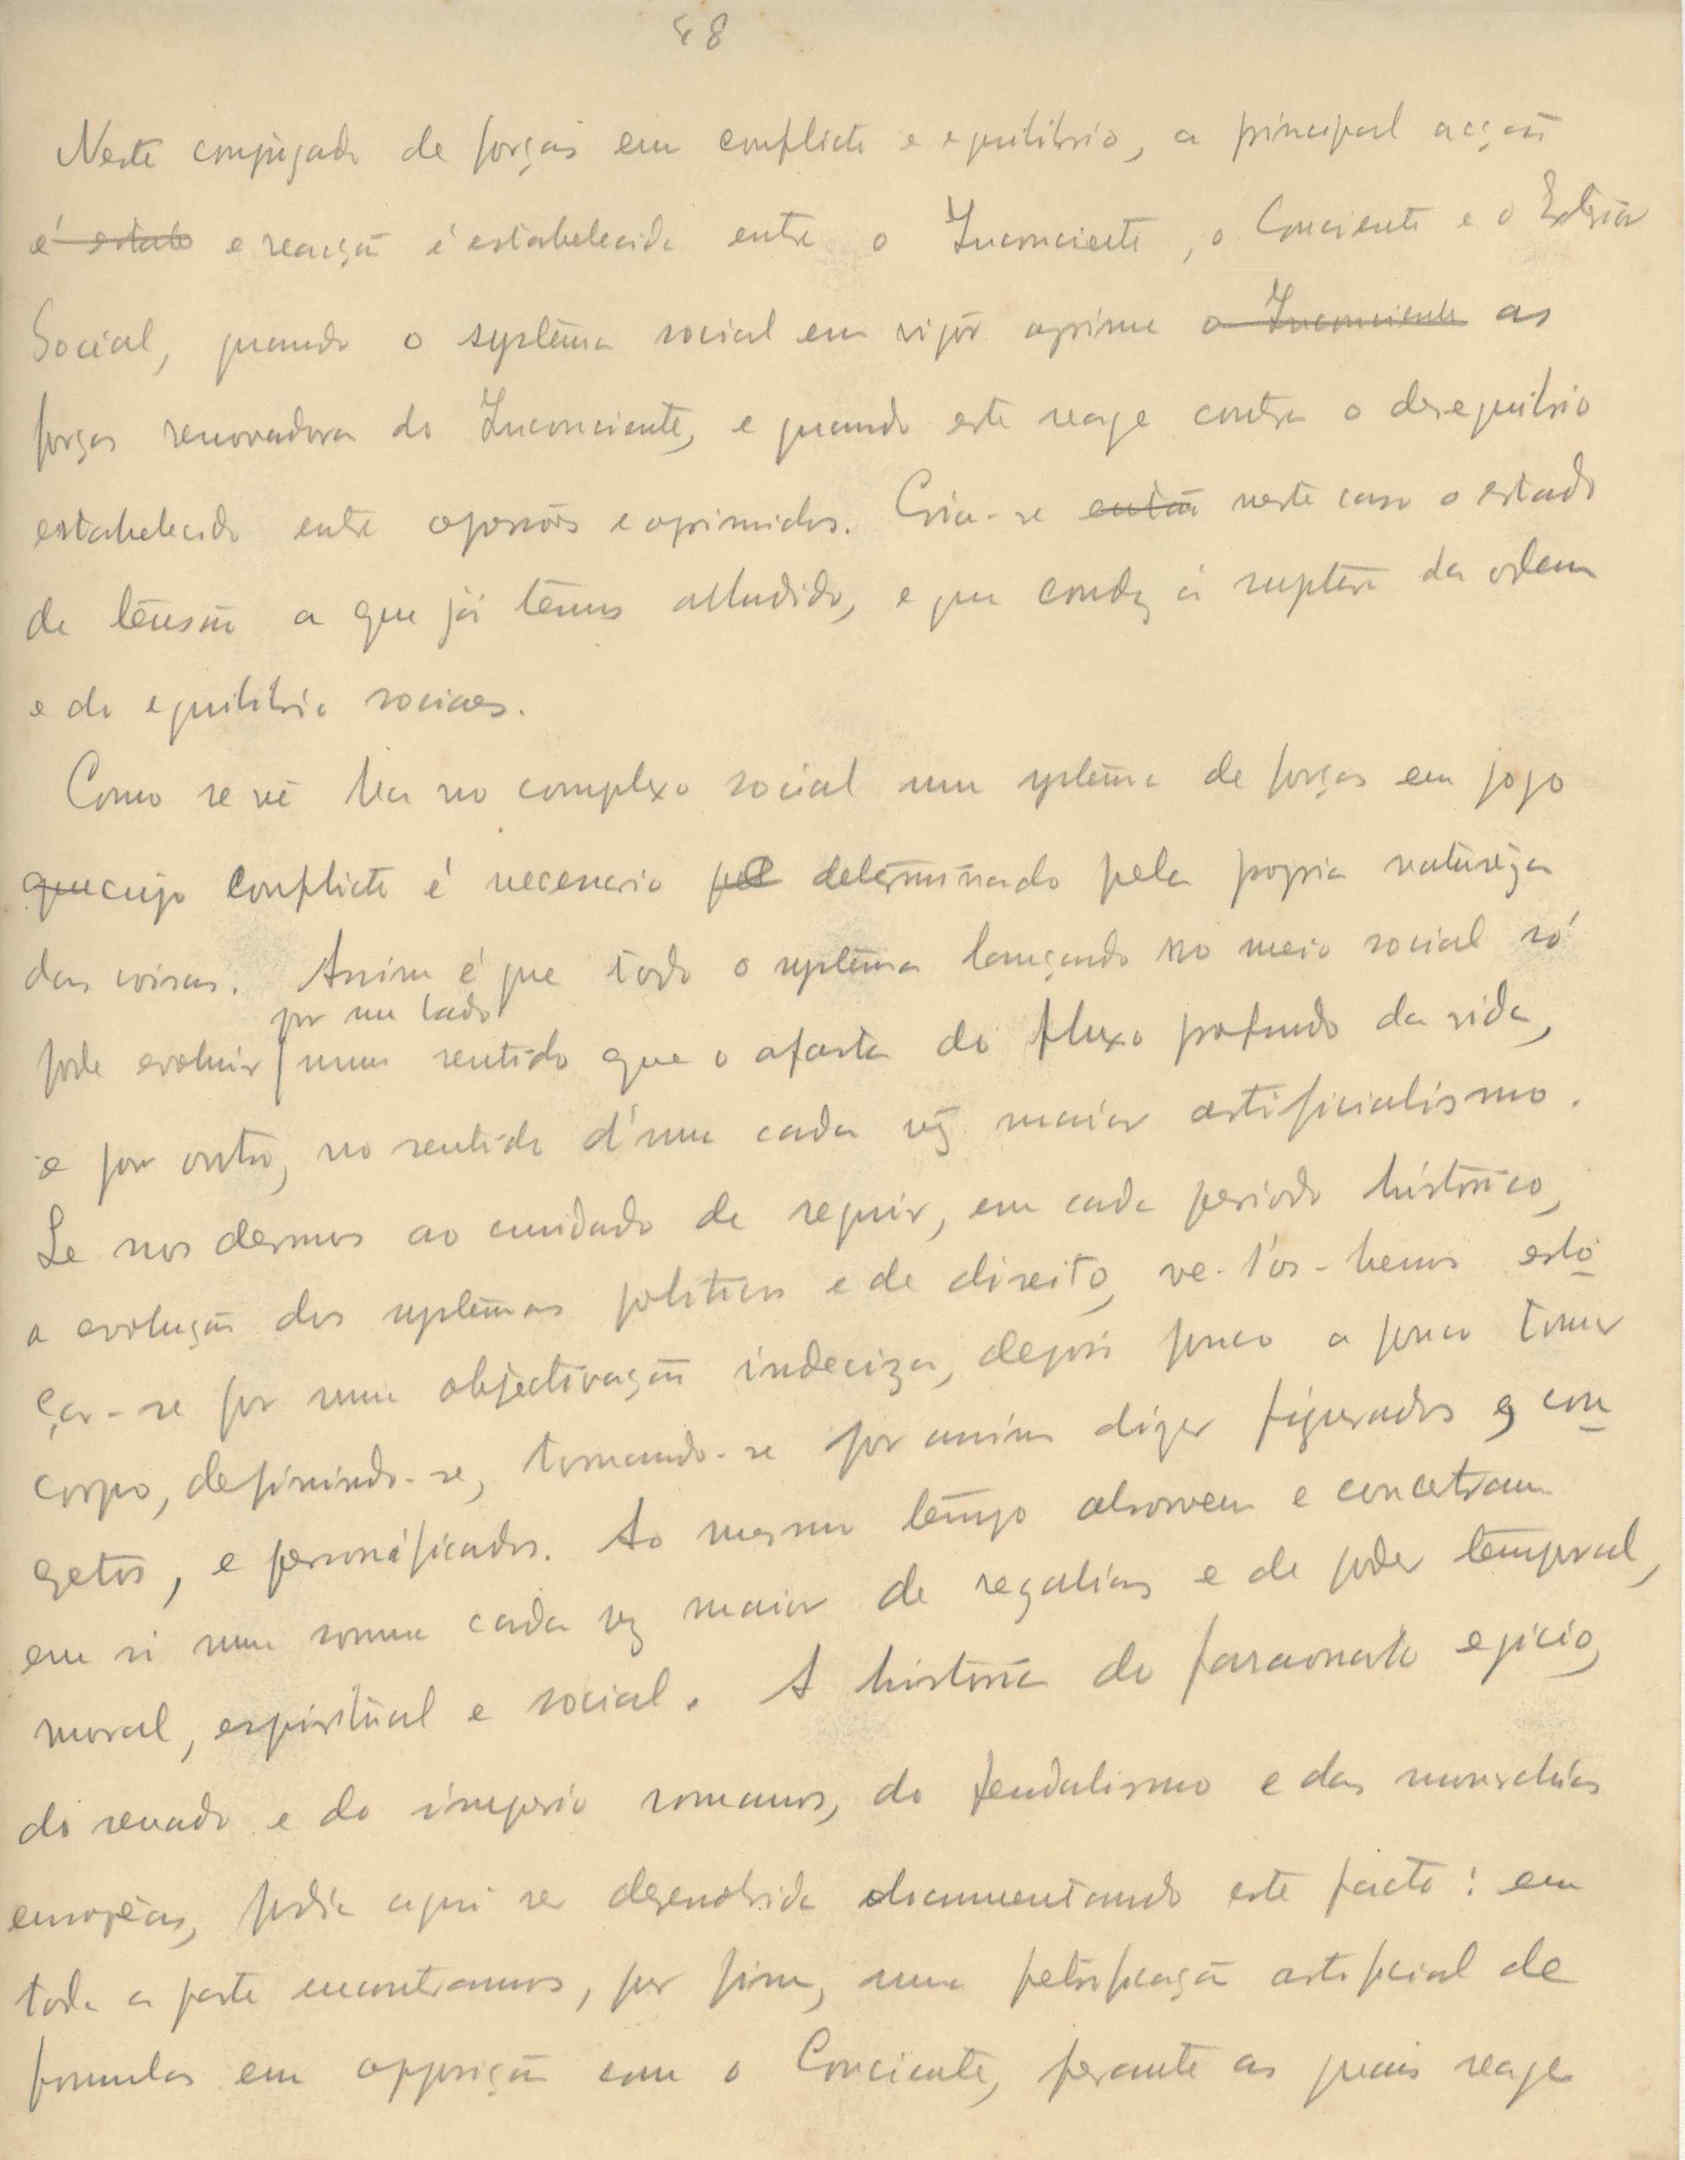 48
Neste conjugado de forças em conflicto e equilibrio, a principal acção
é estabe e reacção é estabelecida entre o Inconciente, o Conciente e o Exterior
Social, quando o systêma social em vigôr oprime o Inconciente as
forças renovadoras do Inconciente, e quando este reage contra o desequilibrio
estabelecido entre opressôres e oprimidos. Cria-se então neste caso o estado
de tênsão a que já têmos alludido, e que conduz á ruptura da ordem
e do equilibrio sociaes.
Como se vê ha no complexo social um systêma de forças em jogo
que cujo conflicto é necessario determinado pela propria naturêza
das coisas. Assim é que todo o systêma lançado no meio social só
por um lado
pode evoluir num sentido que o afasta do fluxo profundo da vida,
e por outro, no sentido d'um cada vêz maior artificialismo.
Se nos dermos ao cuidado de seguir, em cada periodo histórico,
a evolução dos systêmas politicos e de direito, ve-l'os-hemos esbo
çar-se por uma objectivação indeciza, depois pouco a pouco tomar
corpo, definindo-se, tornando-se por assim dizer figurados e con
cretos, e personificados. Ao mesmo têmpo absorvem e concetram
em si uma somma cada vez maior de regalias e de poder temporal,
moral, espiritual e social. A história do faraonato egicio,
do senado e do imperio romanos, do feudalismo e das monarchias
europêas, podia aqui ser dezenvolvida documentando este facto: em
toda a parte encontramos, por fim, uma petrificação artificial de
formulas em opposição com o Conciente, perante as quais reage